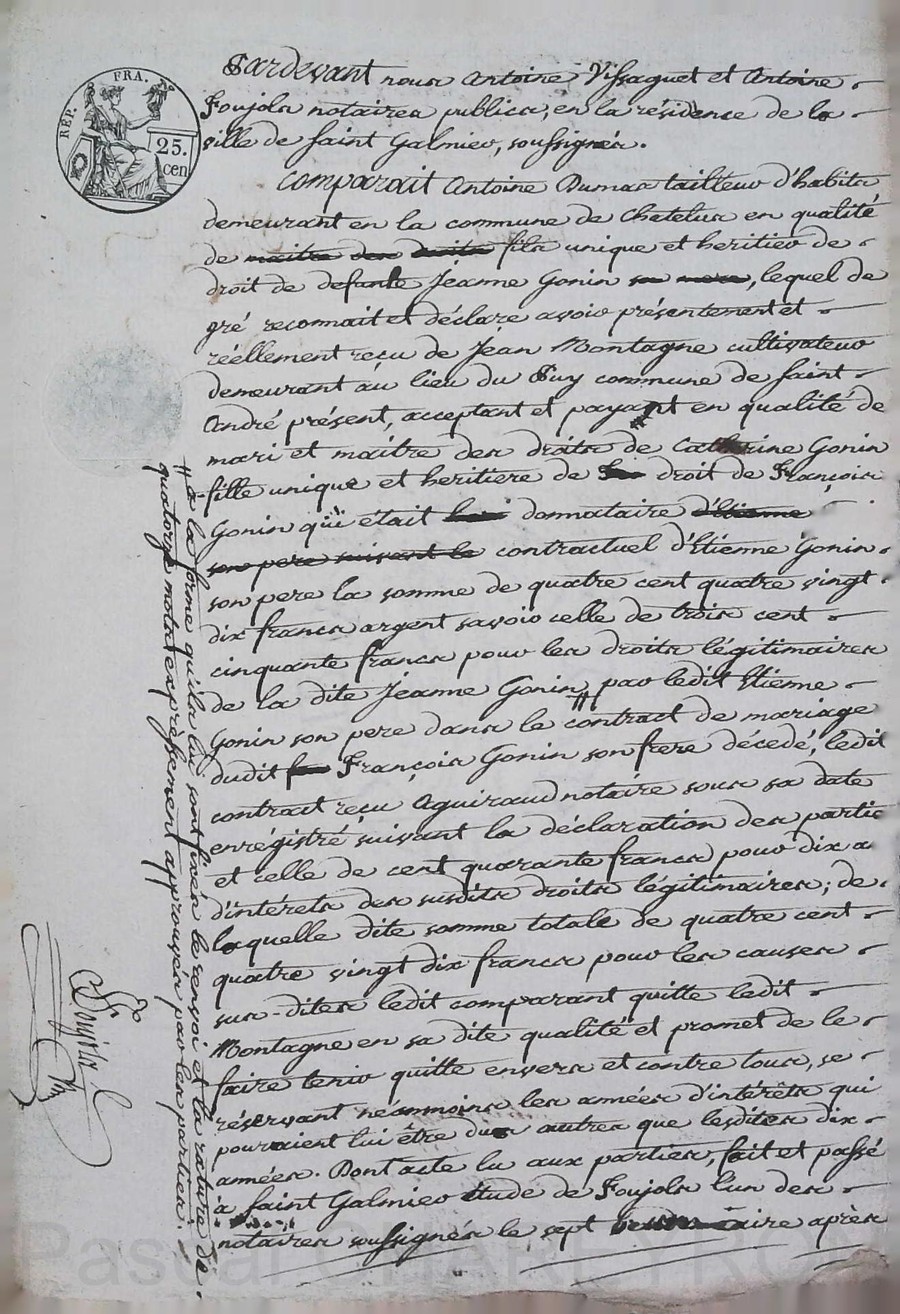 RÉP. FRA.
25.
cen
Pardevant nous Antoine Vissaguet et Antoine
Foujols notaires publics, en la résidence de la
ville de Saint Galmier, soussignés.
Comparait Antoine Dumas tailleur d'habits
demeurant en la commune de Chatelus en qualité
de maitre des droits fils unique et heritier de
droit de defunte Jeanne Gonin sa mere, lequel de
gré reconnait et déclare avoir présentement et
réellement reçu de Jean Montagne cultivateur
demeurant au lieu du Puy commune de Saint
André présent, acceptant et payant en qualité de
mari et maitre des droits de Catherine Gonin
fille unique et heritiere de droit de François
Gonin qui était donnataire d'Etienne
son pere suivant le contractuel d'Etienne Gonin
son pere la somme de quatre cent quatre vingt
dix francs argent savoir celle de trois cent
cinquante francs pour les droits légitimaires
de la dite Jeanne Gonin, par ledit Etienne
Gonin son pere dans le contract de mariage
dudit François Gonin son frere décedé, ledit
contrait reçu Aguiraud notaire sous sa date
enrégistré suivant la déclaration des partie
et celle de cent quarante francs pour dix a
d'intérets des susdits droits légitimaires; de
laquelle dite somme totale de quatre cent
quatre vingt dix francs pour les causes
sus-dites ledit comparant quitte ledit
Montagne en sa dite qualité et promet de le
faire tenir quitte envers et contre tous, se
réservant néammoins les années d'intérêts qui
pourraient lui être dus autres que lesdites dix
années. Dont acte lu aux parties, fait et passé
à Saint Galmier étude de Foujols l'un des
notaires soussignés le sept aire après
# à la forme qu'ils lui sont fixés le renvoi et la rature de
quatorze mots expressement approuvés par les parties.
Foujols
Pascal CHAREYRON